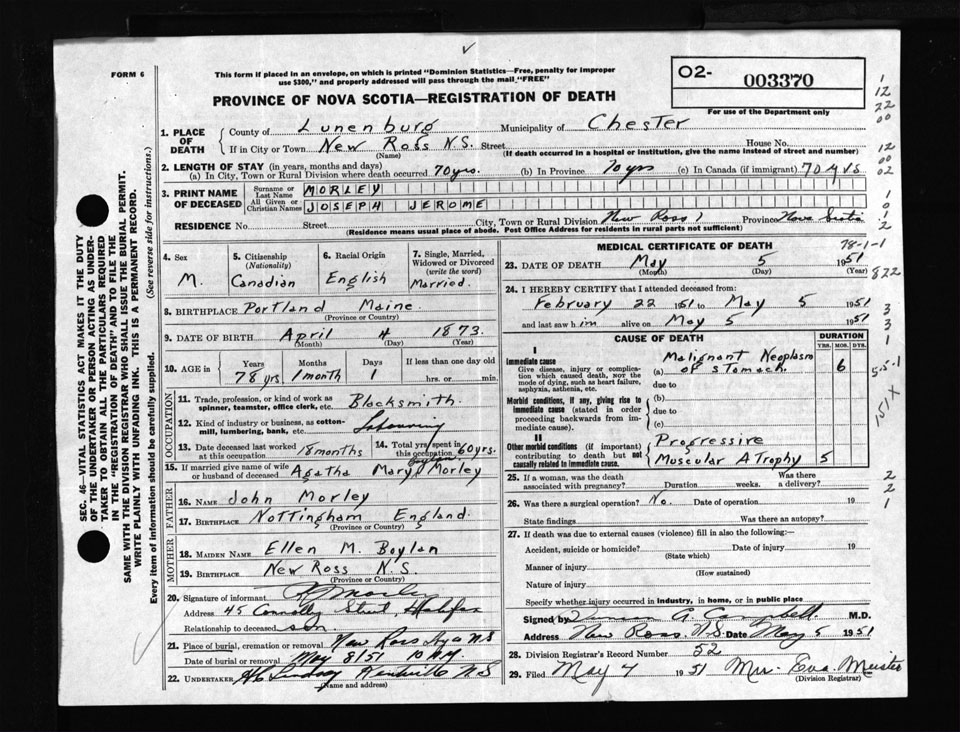 FORM 6
This form if placed in an envelope, on which is printed "Dominion Statistics—Free, penalty for improper
use $300," and properly addressed will pass through the mail "FREE"
O2- 003370
For use of the Department only
PROVINCE OF NOVA SCOTIA—REGISTRATION OF DEATH
SEC. 46—VITAL STATISTICS ACT MAKES IT THE DUTY
OF THE UNDERTAKER OR PERSON ACTING AS UNDER-
TAKER TO OBTAIN ALL THE PARTICULARS REQUIRED
IN THE "REGISTRATION OF DEATH" AND TO FILE THE
SAME WITH THE DIVISION REGISTRAR WHO SHALL ISSUE THE BURIAL PERMIT.
WRITE PLAINLY WITH UNFADING INK. THIS IS A PERMANENT RECORD.
Every item of information should be carefully supplied. (See reverse side for instructions.)
1. PLACE OF DEATH
County of Lunenburg Municipality of Chester
If in City or Town New Ross N.S. Street House No.
(Name) (If death occurred in a hospital or institution, give the name instead of street and number)
2. LENGTH OF STAY (in years, months and days)
(a) In City, Town or Rural Division where death occurred 70 yrs. (b) In Province 70 yrs (c) In Canada (if immigrant) 70 yrs
3. PRINT NAME OF DECEASED
Surname or Last Name MORLEY
All Given or Christian Names JOSEPH JEROME
RESIDENCE No. Street City, Town or Rural Division New Ross Province Nova Scotia
(Residence means usual place of abode. Post Office Address for residents in rural parts not sufficient)
4. Sex M.
5. Citizenship (Nationality) Canadian
6. Racial Origin English
7. Single, Married, Widowed or Divorced (write the word) Married.
8. BIRTHPLACE Portland Maine
(Province or Country)
9. DATE OF BIRTH April 4 1873.
(Month) (Day) (Year)
10. AGE in Years Months Days If less than one day old
78 yrs. 1 month 1 hrs. or min.
OCCUPATION
11. Trade, profession, or kind of work as spinner, teamster, office clerk, etc. Blacksmith.
12. Kind of industry or business, as cotton-mill, lumbering, bank, etc.
13. Date deceased last worked at this occupation 18 months
14. Total yrs. spent in this occupation 60 yrs.
15. If married give name of wife or husband of deceased Agatha Mary Boylan Morley
FATHER
16. NAME John Morley
17. BIRTHPLACE Nottingham England.
(Province or Country)
MOTHER
18. MAIDEN NAME Ellen M. Boylan
19. BIRTHPLACE New Ross N.S
(Province or Country)
20. Signature of informant Morley
Address 45 Connolly Street Halifax
Relationship to deceased son.
21. Place of burial, cremation or removal New Ross N S
Date of burial or removal May 8/51 10 AM.
22. UNDERTAKER Lindsay Kentville N S
(Name and address)
MEDICAL CERTIFICATE OF DEATH
78-1-1
23. DATE OF DEATH May 5 1951
(Month) (Day) (Year)
24. I HEREBY CERTIFY that I attended deceased from:
February 22 1951 to May 5 1951
and last saw him alive on May 5 1951
CAUSE OF DEATH DURATION
YRS. MOS. DYS.
I
Immediate cause
Give disease, injury or complication which caused death, not the mode of dying, such as heart failure, asphyxia, asthenia, etc.
(a) Malignant Neoplasm of stomach. 6
due to
Morbid conditions, if any, giving rise to immediate cause (stated in order proceeding backwards from immediate cause).
(b)
due to
(c)
II
Other morbid conditions (if important) contributing to death but not causally related to immediate cause.
Progressive
Muscular Atrophy 5
25. If a woman, was the death associated with pregnancy? Duration weeks. Was there a delivery?
26. Was there a surgical operation? No. Date of operation 19
State findings Was there an autopsy?
27. If death was due to external causes (violence) fill in also the following:—
Accident, suicide or homicide? Date of injury 19
(State which)
Manner of injury
(How sustained)
Nature of injury
Specify whether injury occurred in industry, in home, or in public place
Signed by A Campbell M.D.
Address New Ross N.S. Date May 5 1951
28. Division Registrar's Record Number 52
29. Filed May 7 1951 Mrs. Eva Meister
(Division Registrar)
1
12
22
00
12
00
02
1
0
1
2
822
3
3
1
5-5-1
151 X
2
2
1